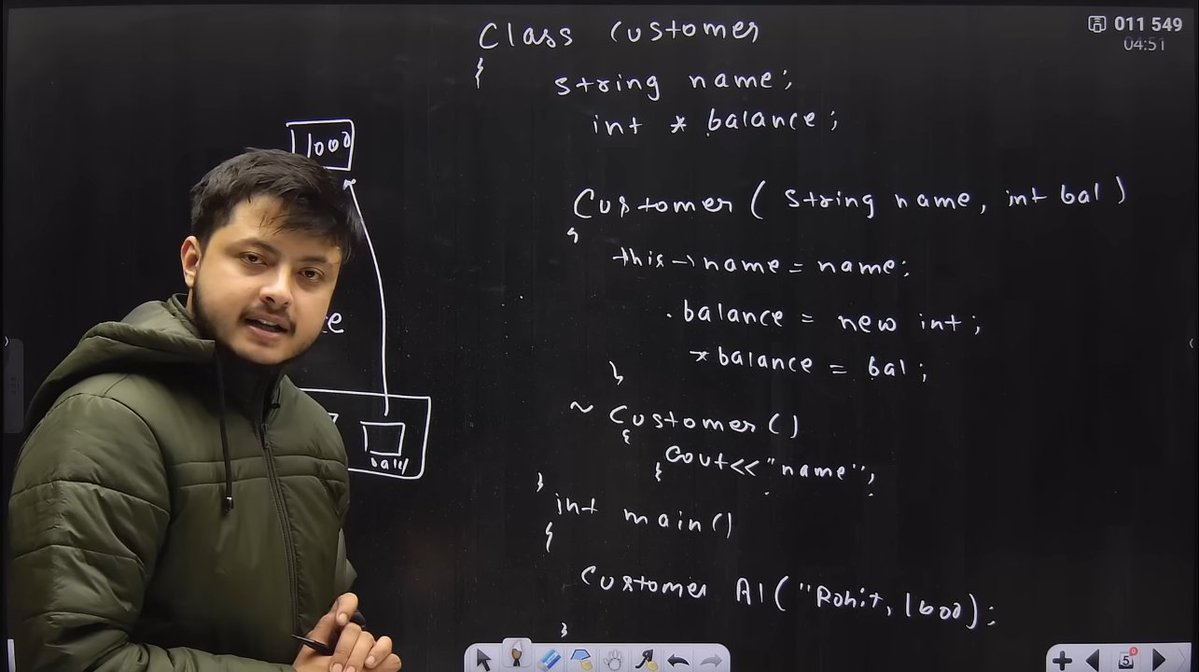 Class Customer
{
string name;
int * balance;
Customer ( string name, int bal )
{
this→name = name;
balance = new int;
*balance = bal;
}
~ Customer ()
{
cout<< "name";
}
}
int main()
{
Customer A1 ("Rohit, 1000);
}
1000
011 549
04:51
5